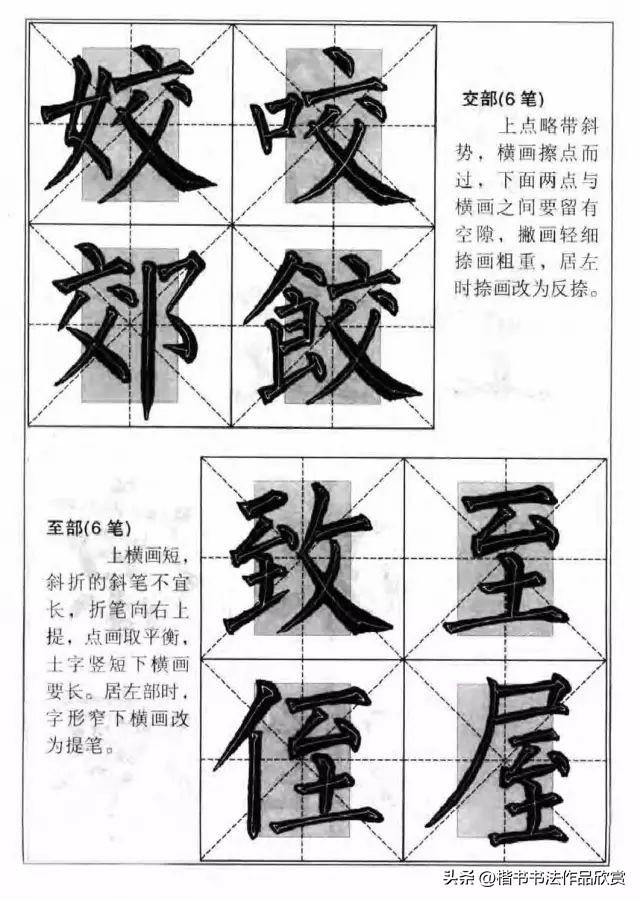 姣 咬
郊 餃
交部(6笔)
上点略带斜
势，横画擦点而
过，下面两点与
横画之间要留有
空隙，撇画轻细
捺画粗重，居左
时捺画改为反捺。
至部(6笔)
上横画短，
斜折的斜笔不宜
长，折笔向右上
提，点画取平衡，
土字竖短下横画
要长。居左部时，
字形窄下横画改
为提笔。
致 至
侄 屋
头条 @楷书书法作品欣赏